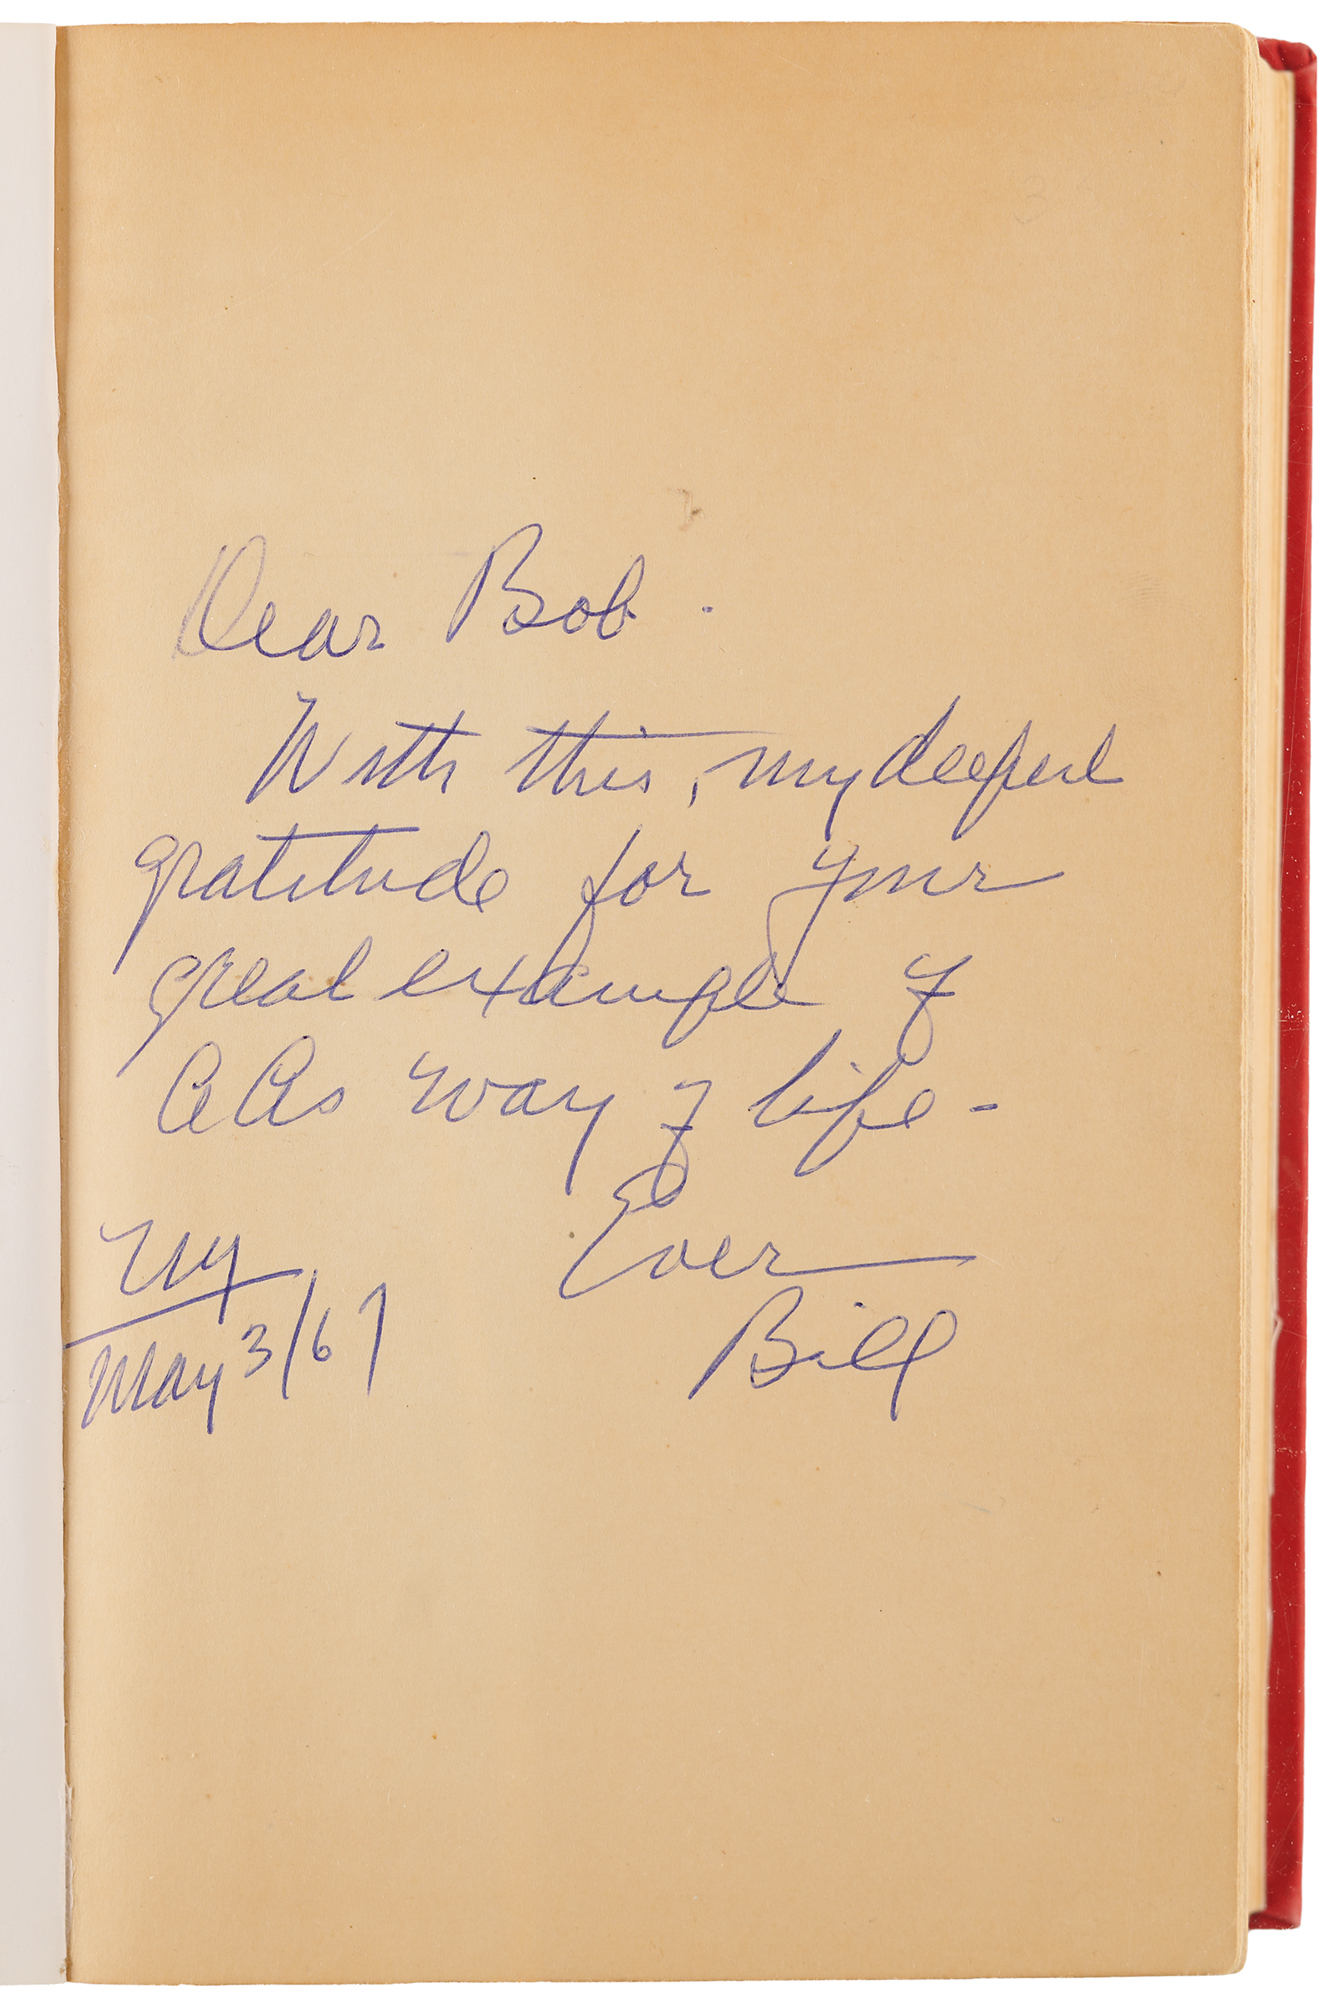 Dear Bob.
With this, my deepest
gratitude for your
great example of
AAs way of life -
Ever
Bill
NY
May 3/67